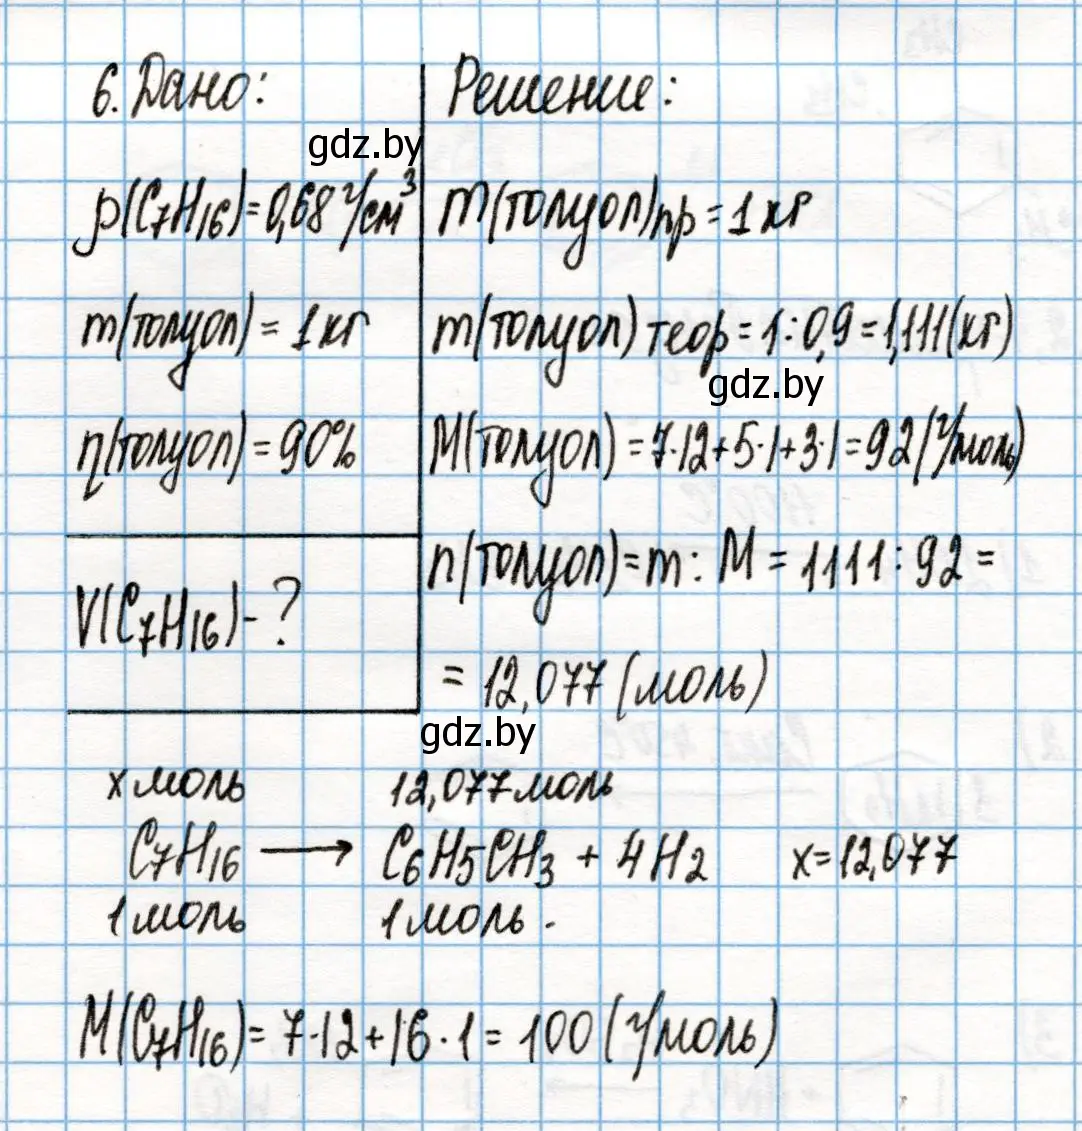 6. Дано:
gdz.by
ρ(C₇H₁₆)=0,68 г/см³
m(толуол) = 1 кг
η(толуол) = 90%
V(C₇H₁₆) - ?
Решение:
m(толуол)пр = 1 кг
m(толуол) теор = 1:0,9 = 1,111(кг)
gdz.by
M(толуол) = 7·12+5·1+3·1 = 92 (г/моль)
n(толуол) = m : M = 1111 : 92 =
= 12,077 (моль)
gdz.by
x моль 12,077 моль
C₇H₁₆ ⟶ C₆H₅CH₃ + 4H₂ x=12,077
1 моль 1 моль.
M(C₇H₁₆) = 7·12+16·1 = 100 (г/моль)